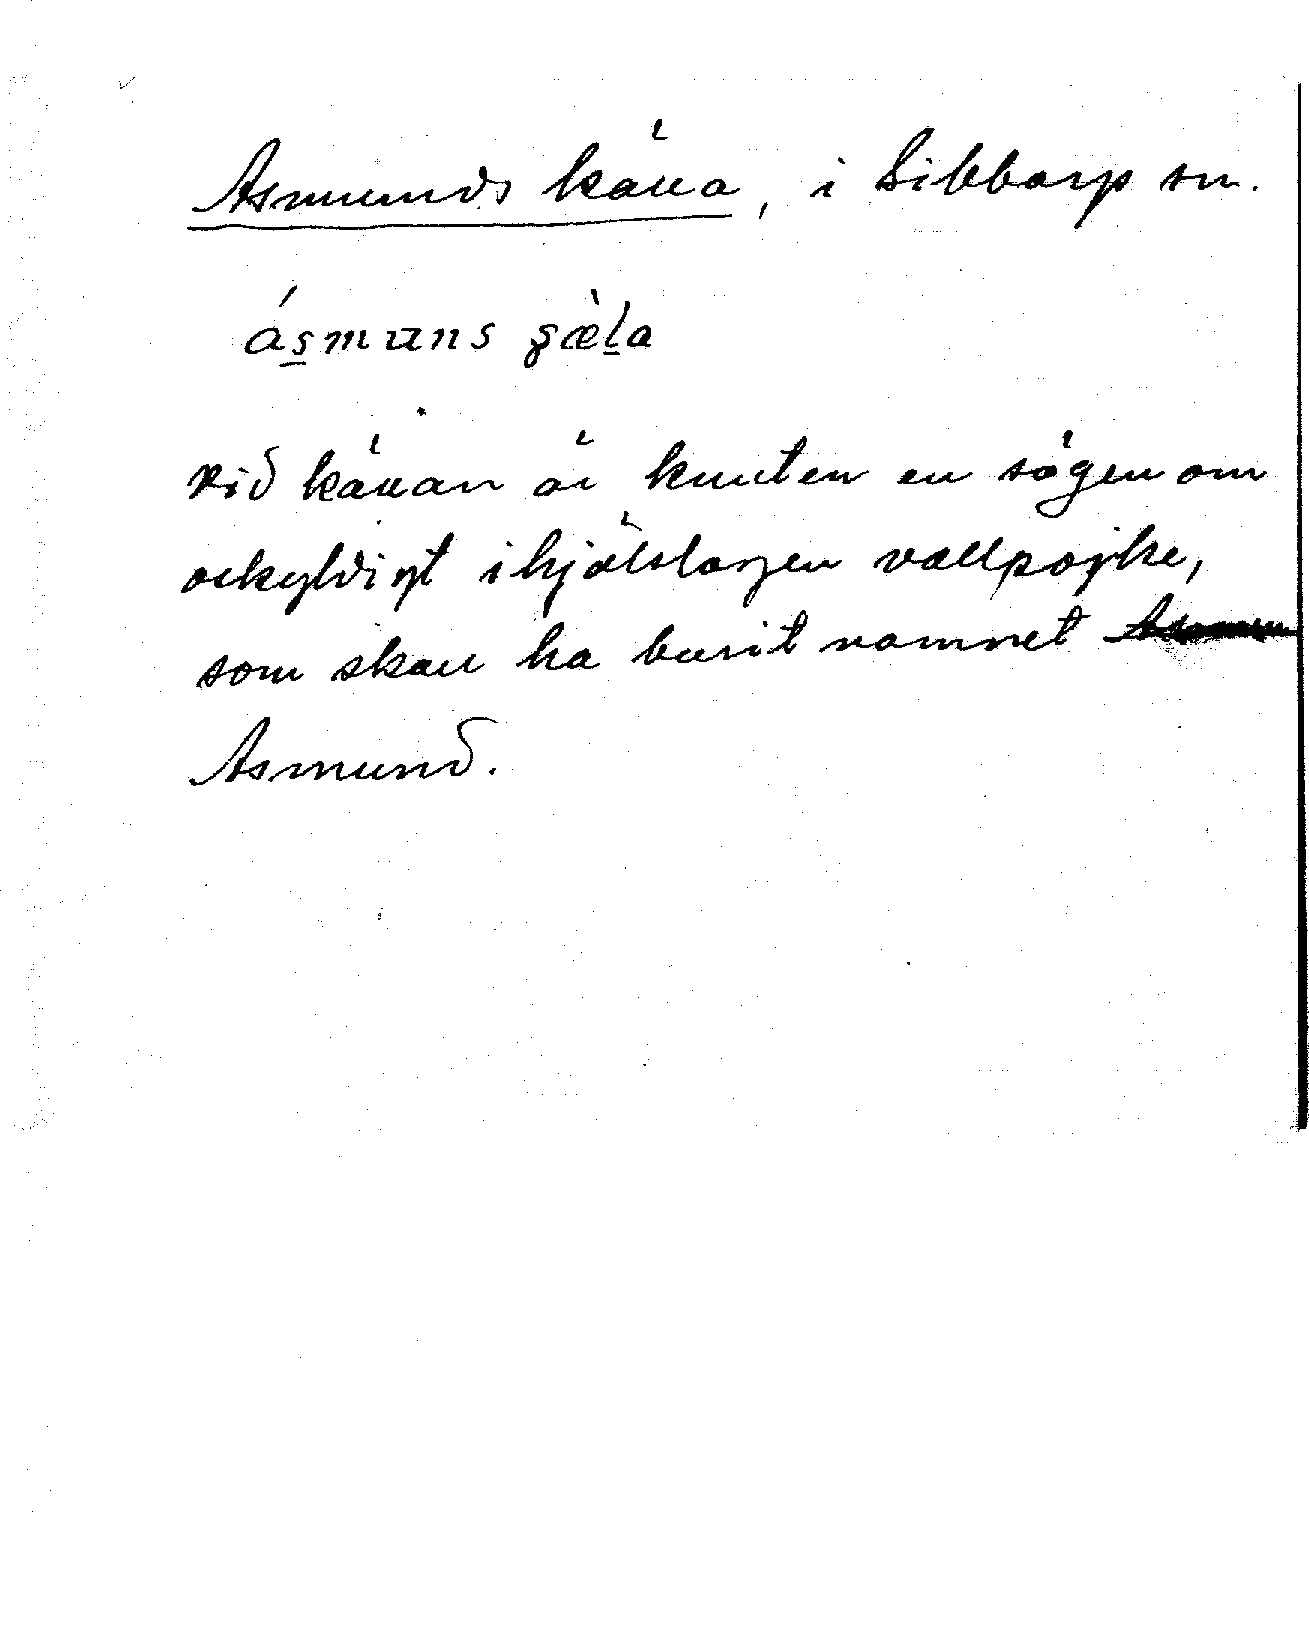 Asmunds källa, i Sibbarp sn.
ásmuns ʂæ̀la
Vid källan är knuten en sägen om
oskyldigt ihjälslagen vallpojke,
som skall ha burit namnet
Asmund.